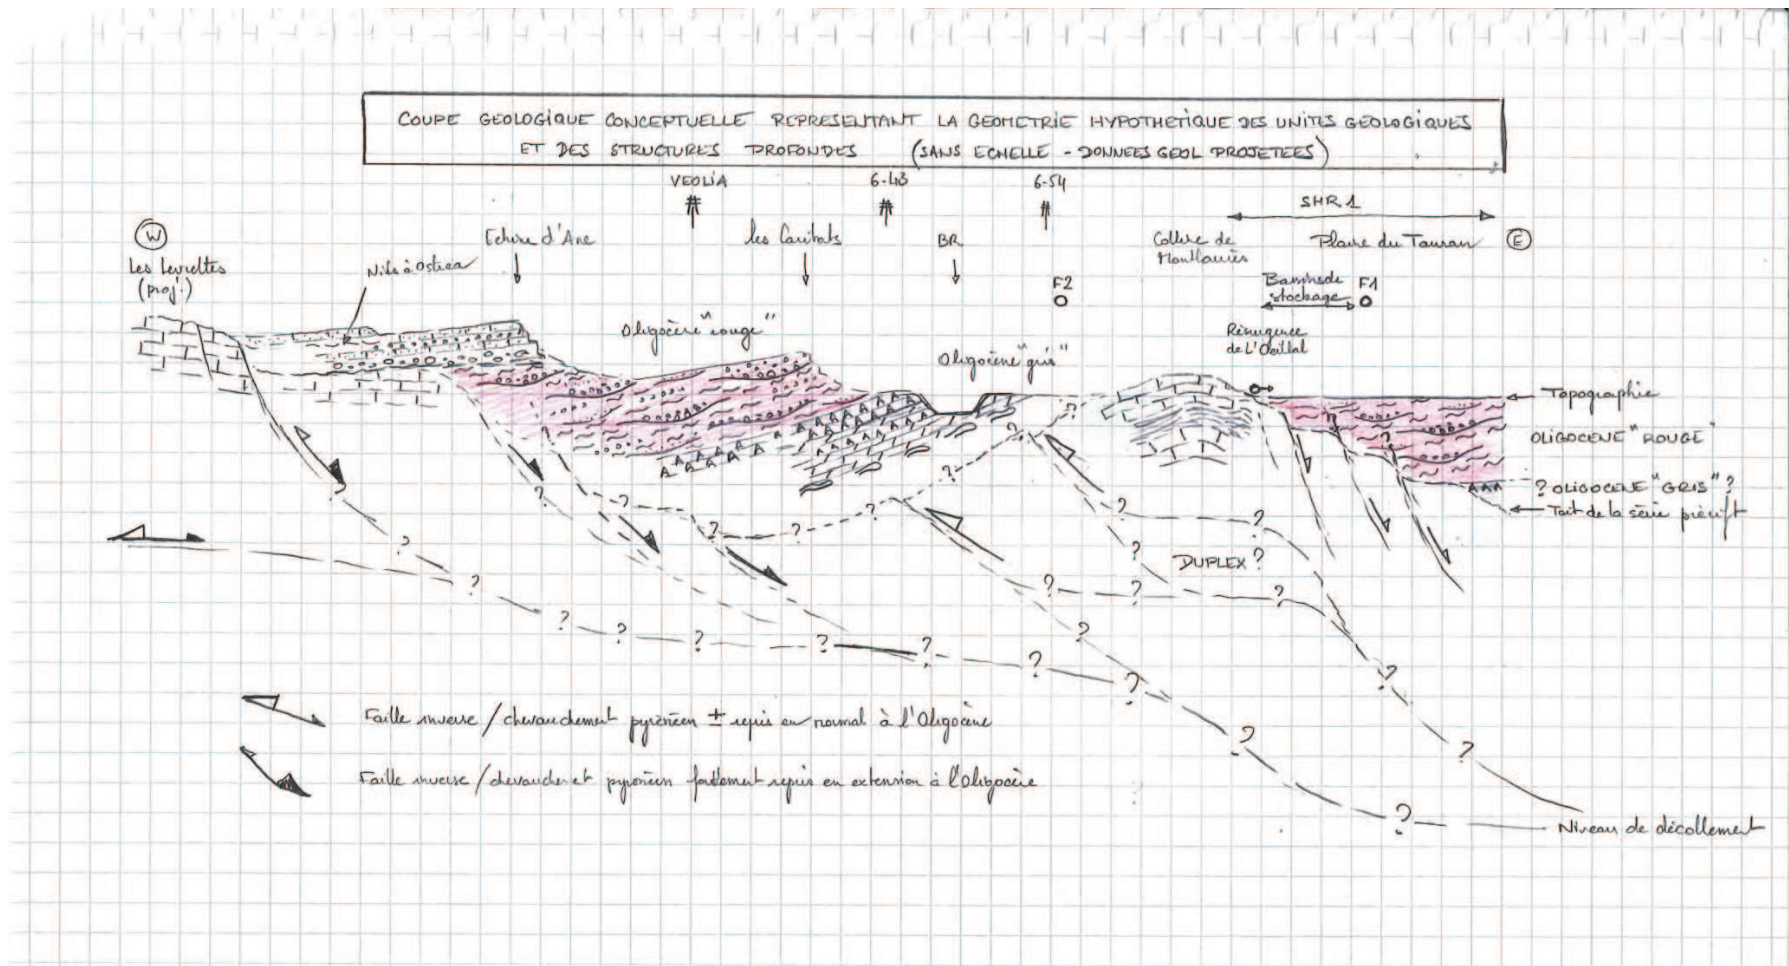 COUPE GEOLOGIQUE CONCEPTUELLE REPRESENTANT LA GEOMETRIE HYPOTHETIQUE DES UNITES GEOLOGIQUES
ET DES STRUCTURES PROFONDES (SANS ECHELLE - DONNEES GEOL PROJETEES)
VEOLIA
6-43
6-54
SHR1
W
Echine d'Ane
les Caritats
BR
Colline de
Montlaurès
Plaine du Tauran
E
Les Leviettes
(proj.)
Niv. à Ostrea
F2
Bassins de
stockage
F1
Oligocène "rouge"
Oligocène "gris"
Résurgence
de L'Oeillal
Topographie
OLIGOCENE "ROUGE"
? OLIGOCENE "GRIS" ?
Toit de la série prérift
DUPLEX ?
Faille inverse / chevauchement pyrénéen ± repris en normal à l'Oligocène
Faille inverse / chevauchemet pyrénéen fortement repris en extension à l'Oligocène
Niveau de décollement